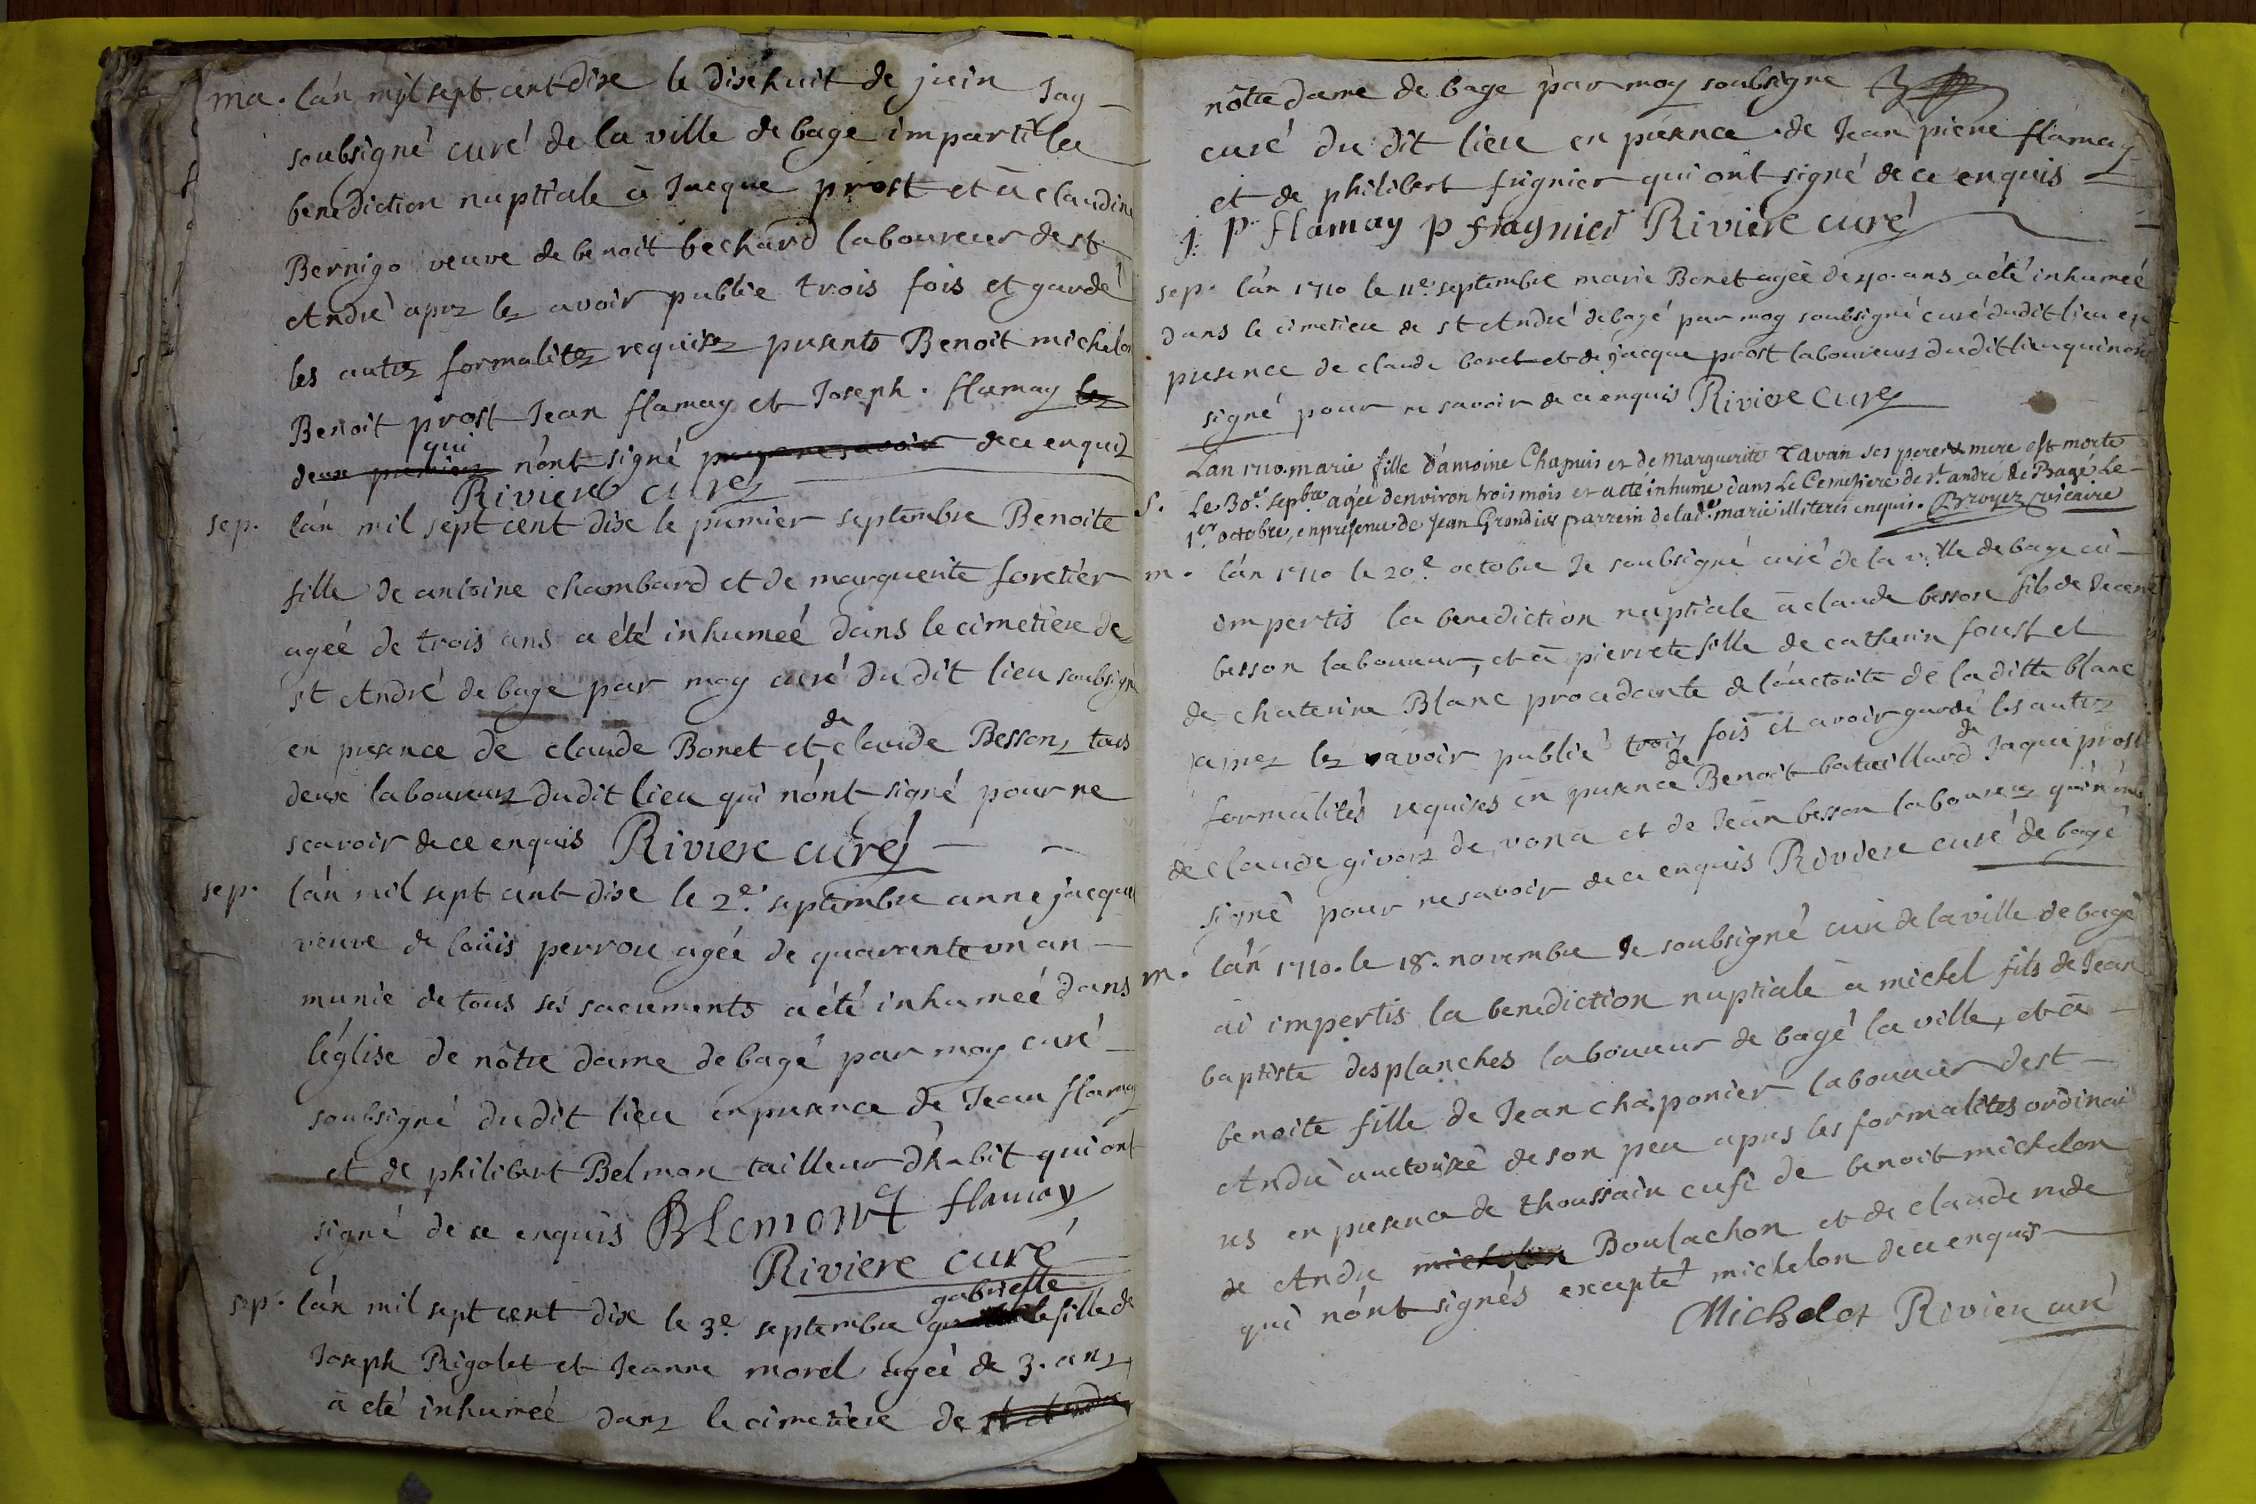 ma. lán mil sept cent dixe le dixe huit de juin Jay
soubsigné curé de la ville de bage imparti la
benediction nuptiale à Jacque prost et à claudine
Bernigo veuve de benoit bechard laboureur de st
André aprz lez avoir publie trois fois et gardé
les autrz formalitez requisez presents Benoit michelon
Benoit prost Jean flamay et Joseph. flamay lez
qui
deux premiers n'ont signé pour ne savoir de ce enquis
Riviere curé
sep. lán mil sept cent dixe le premier septembre Benoite
fille de antoine chambard et de marguerite foretier
agéé de trois ans a été inhumeé dans le cimetiere de
st André de bage par moy curé du dit lieu soubsigné
de
en presence de claude Bonet et claude Besson tous
deux laboureurz dudit lieu qui n'ont signé pour ne
scavoir de ce enquis Riviere curé
sep. lán mil sept cent dixe le 2e. septembre anne jacque
veuve de loüis perrou agéé de quarante un an
munie de tous ses sacrements a été inhumeé dans
léglise de nôtre dame de bagé par moy curé
soubsigné dudit lieu en presence de Jean flamay
et de philibert Belmon tailleur d'habit qui ont
signé de ce enquis BLemont flamay
Riviere curé
gabrielle
sep. lán mil sept cent dixe le 3e. septembre fille de
Joseph Rigolet et Jeanne morel ageé de 3. anz
à eté inhumeé danz le cimetiere de st André
nôtre dame de bage par moy soubsigne
curé du dit lieu en presence de Jean pierre flamay
et de philibert frignier qui ont signé de ce enquis
j. p. flamay p fragnier Riviere curé
sep. lán 1710 le 11e. septembre marie Bonet ageé de 40. ans a été inhumeé
dans le cimetiere de st André de bagé par moy soubsigné curé dudit lieu en
presence de claude bonet et de jacque prost laboureurz dudit lieu qui n'ont
signé pour ne savoir de ce enquis Riviere curé
Lan 1710. marie fille d'amoine Chapuis et de marguerite Tavan ses pere & mere est morte
s. Le 30e. sepbre agéé denviron trois mois et a eté inhumé dans Le Cemetiere de st. andré de Bagé Le
1er. octobre, en presence de Jean Grandius parrein de lade. marie illiterés enquis. Broyer vicaire
m. lán 1710 le 20e. octobre Je soubsigné curé de la ville de bage ai
impertis la benediction nuptiale à claude besson fils de
besson laboureur, et à pierrete fille de catherin foust et
de chaterine Blanc procedante de láuctorité de la ditte blanc
aprez lez avoir publié trois fois et avoir gardé les autrz
de de
formalités requises en presence Benoit bataillard Jaque prost
de claude givorz de vona et de Jean besson laboureurz qui n'ont
signé pour ne savoir de ce enquis Riviere curé de bagé
m. lán 1710. le 18. novembre Je soubsigné curé de la ville de bagé
ai impertis la benediction nuptiale à michel fils de Jean
baptiste desplanches laboureur de bagé la ville, et à
benoite fille de Jean chaponier laboureur de st
André auctorisée de son pere apres les formalités ordinai
res en presence de thoussain cusi de benoit michelon
de Andre michelon Boulachon et de claude rude
qui n'ont signés excepté michelon de ce enquis
Michelot Riviere curé